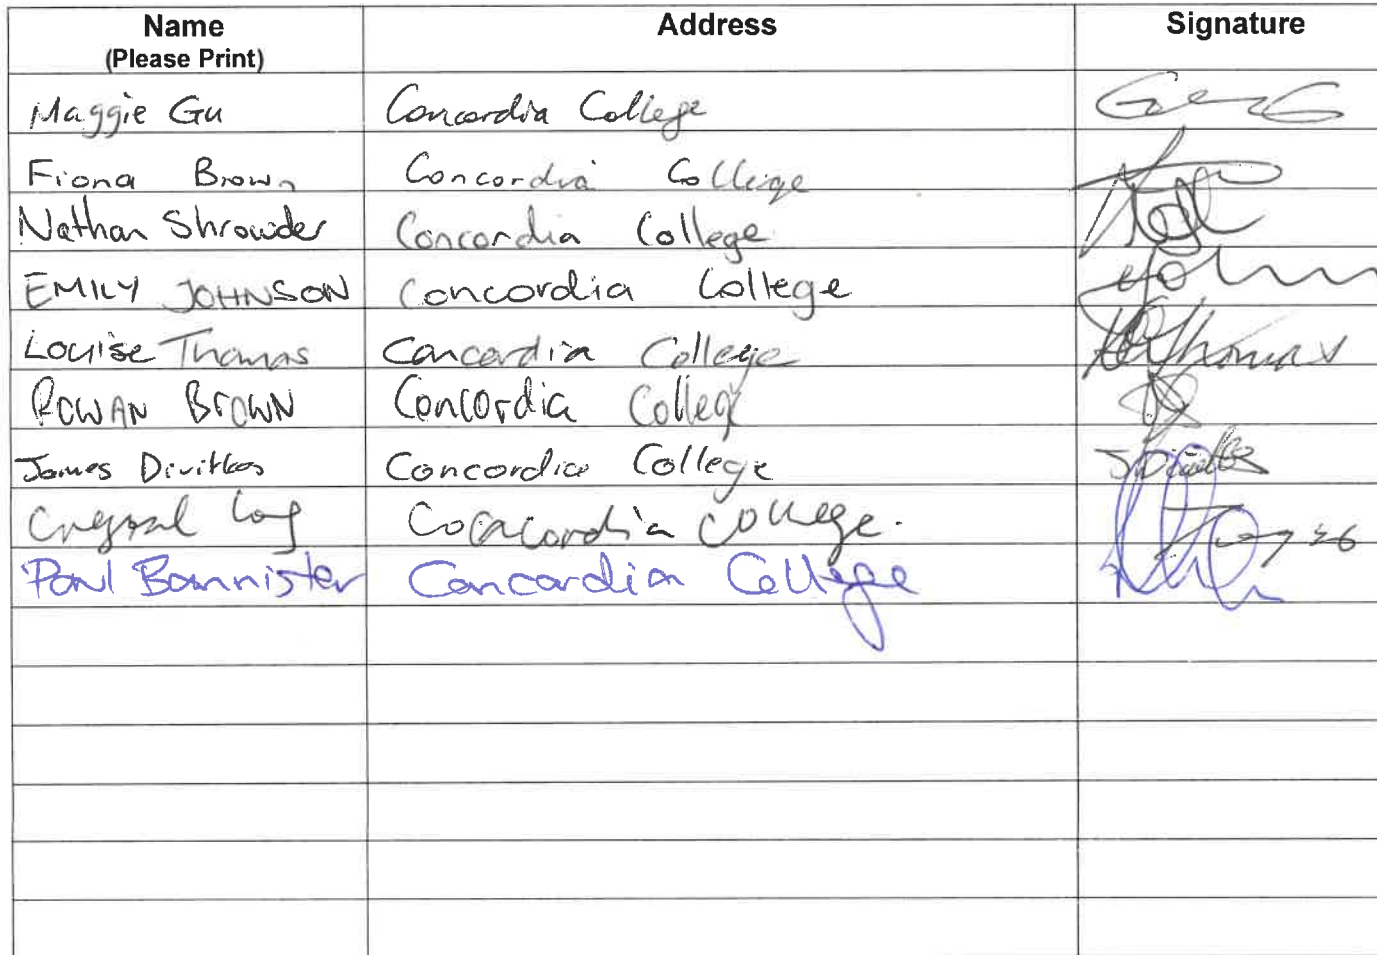 Name Address Signature
(Please Print)
Maggie Gu Concordia College
Fiona Brown Concordia College
Nathan Shrowder Concordia College
EMILY JOHNSON Concordia College
Louise Thomas Concordia College Thomas
ROWAN BROWN Concordia College
James Divitkos Concordia College
Concordia College.
Paul Bannister Concordia College